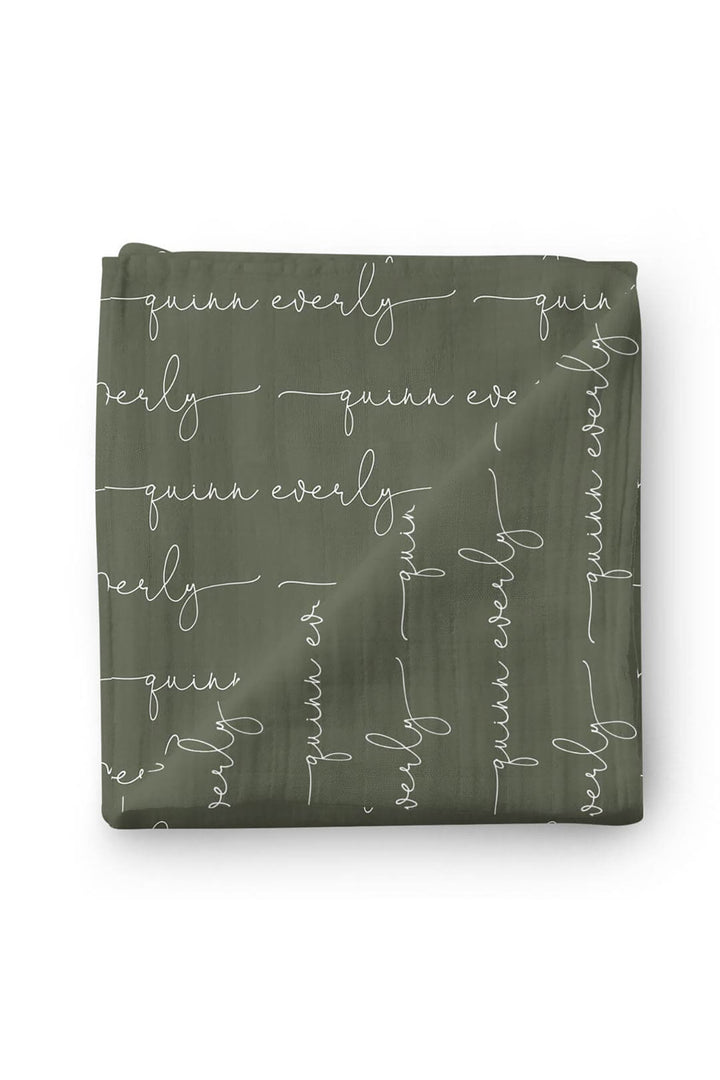 quinn everly quin
verly quinn eve
quinn everly
verly
quinn
ver
quinn everly
quin
everly
quinn everly
quinn ev
verly
verly
verly